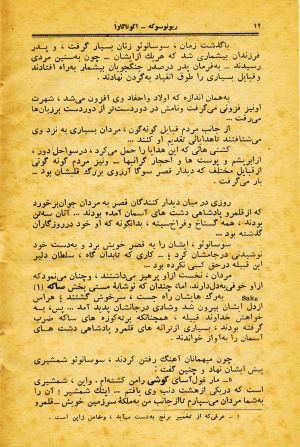 ۱۲ ریونوسوکه – آکوتاگاوا
باگذشت زمان ، سوسانوئو زنان بسیار گرفت ، و پدر
فرزندان بیشماری شد که هریك ازایشان – چون به‌سنین مردی
رسیدند – به‌فرمان پدر درصدر جنگجویان بیشمار به‌راه افتادند
و قبایل بسیاری را طوق انقیاد به‌گردن نهادند .
به‌همان اندازه که اولاد واحفاد وی افزون می‌شد ، شهرت
اونیز فزونی می‌گرفت ونامش در دوردست‌تر از دوردست برزبان‌ها
می‌رفت ...
از جانب مردم قبایل گونه‌گون ، مردان بسیاری به نزد وی
می‌شتافتند تاهدایائی تقدیم او کنند ...
کشتی هائی که این هدایا را حمل می‌کرد ، درسواحل دور ،
ازابریشم و پوست ها و احجار گرانبها – ونیز مردم گونه گونی
از قبایل مختلف که دیدار قصر سوگا آرزوی بزرگ قلبشان بود –
بار می‌گرفت .
روزی در میان دیدار کنندگان قصر به مردان جوان‌برخورد
که ازقلمرو پادشاهی دشت های آسمان آمده بودند ... آنان سه‌تن
بودند ، همه گستاخ وفراخ‌سینه ، بدانگونه که او خود درروزگاران
گذشته بود ...
سوسانوئو ، ایشان را به قصر خویش برد و به‌دست خود
نوشیدنی درجامشان کرد ؛ کاری که تابدان گاه ، سلطان دلیر
این قبیله درحق کسی نکرده بود ...
مردان ، نخست ازاو پرهیز می‌داشتند ، وچنان می‌نمودکه
ازو خوفی به‌دل‌دارند. اما، چندان که نوشابهٔ مستی بخش ساکه (۱)
Sake به‌رگ هایشان راه جست ، سرخوش گشتند ؛ هراس
ازدل ایشان بیرون شد وشادی درجانشان پدید آمد ... پس، به
خواهش خداوند قبیله ، همچنانکه برته‌کوزه های ساکه ضرب
گرفته بودند ، بسیاری ازترانه های قلمرو پادشاهی دشت های
آسمان را به‌آواز خواندند .
چون میهمانان آهنگ رفتن کردند ، سوسانوئو شمشیری
پیش ایشان نهاد و چنین گفت :
«– مار غول‌آسای کوشی رامن کشته‌ام . واین ، شمشیری
است که دریکی ازهشت دنب وی یافتم ... اینك شمشیر ! آن را
به‌شما مردان می‌سپارم تاازجانب من به‌ملکهٔ سرزمین خویش – قلمرو
۱ – عرقی‌که از تخمیر برنج به‌دست میآید ، وخاص ژاپن است .